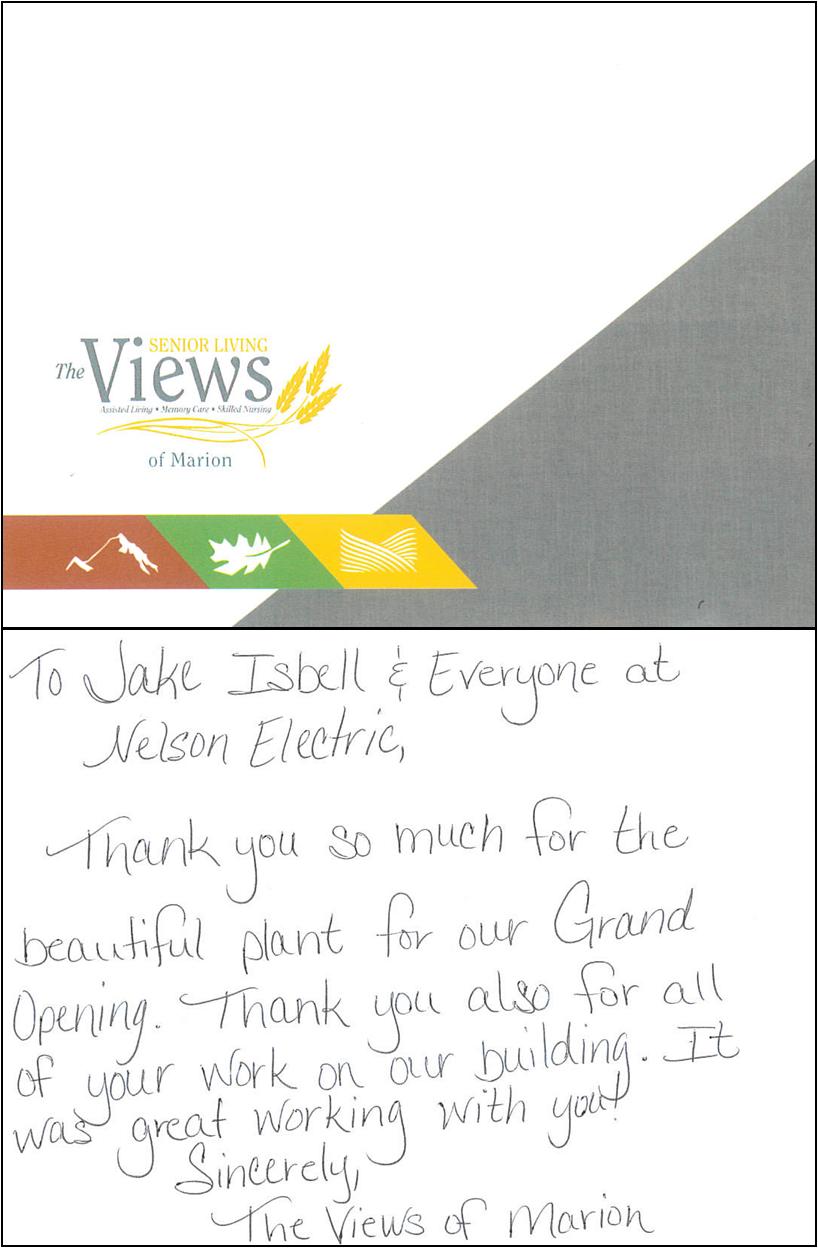 SENIOR LIVING
The Views
Assisted Living • Memory Care • Skilled Nursing
of Marion
To Jake Isbell & Everyone at
Nelson Electric,
Thank you so much for the
beautiful plant for our Grand
Opening. Thank you also for all
of your work on our building. It
was great working with you!
Sincerely,
The Views of Marion